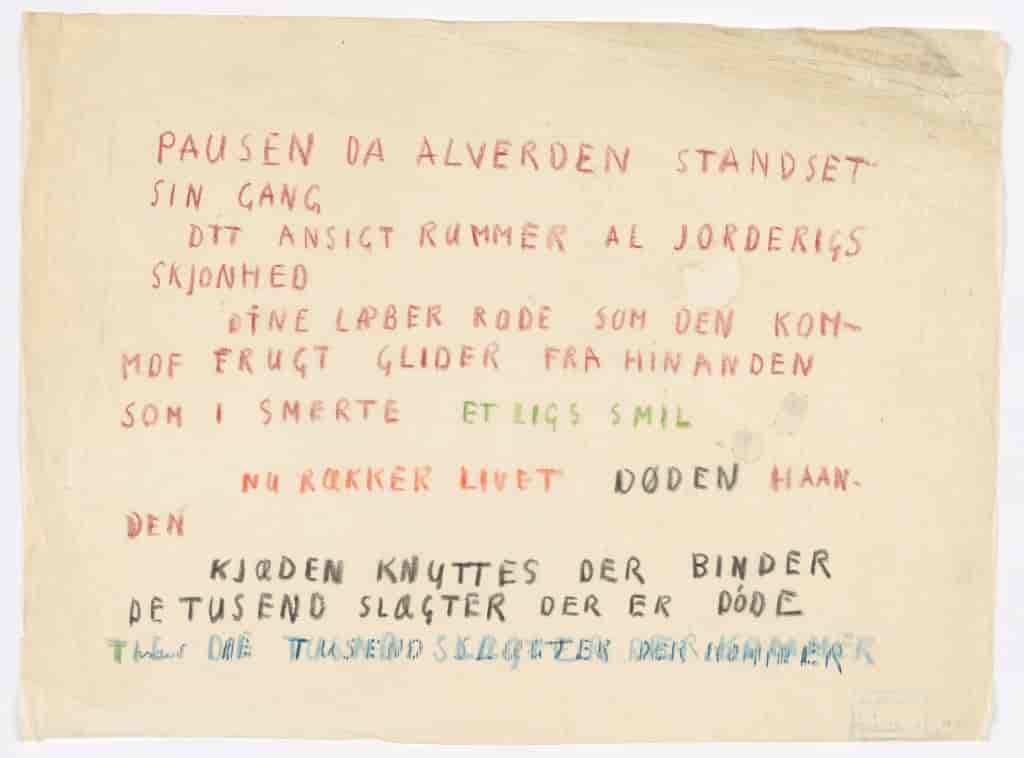 PAUSEN DA ALVERDEN STANDSET
SIN GANG
DIT ANSIGT RUMMER AL JORDERIGS
SKJONHED
DINE LÆBER RØDE SOM DEN KOM-
MDE FRUGT GLIDER FRA HINANDEN
SOM I SMERTE ET LIGS SMIL
NU RÆKKER LIVET DØDEN HAAN-
DEN
KJÆDEN KNYTTES DER BINDER
DE TUSEND SLÆGTER DER ER DÖDE
DE TUSEND SLÆGTER DER KOMMER